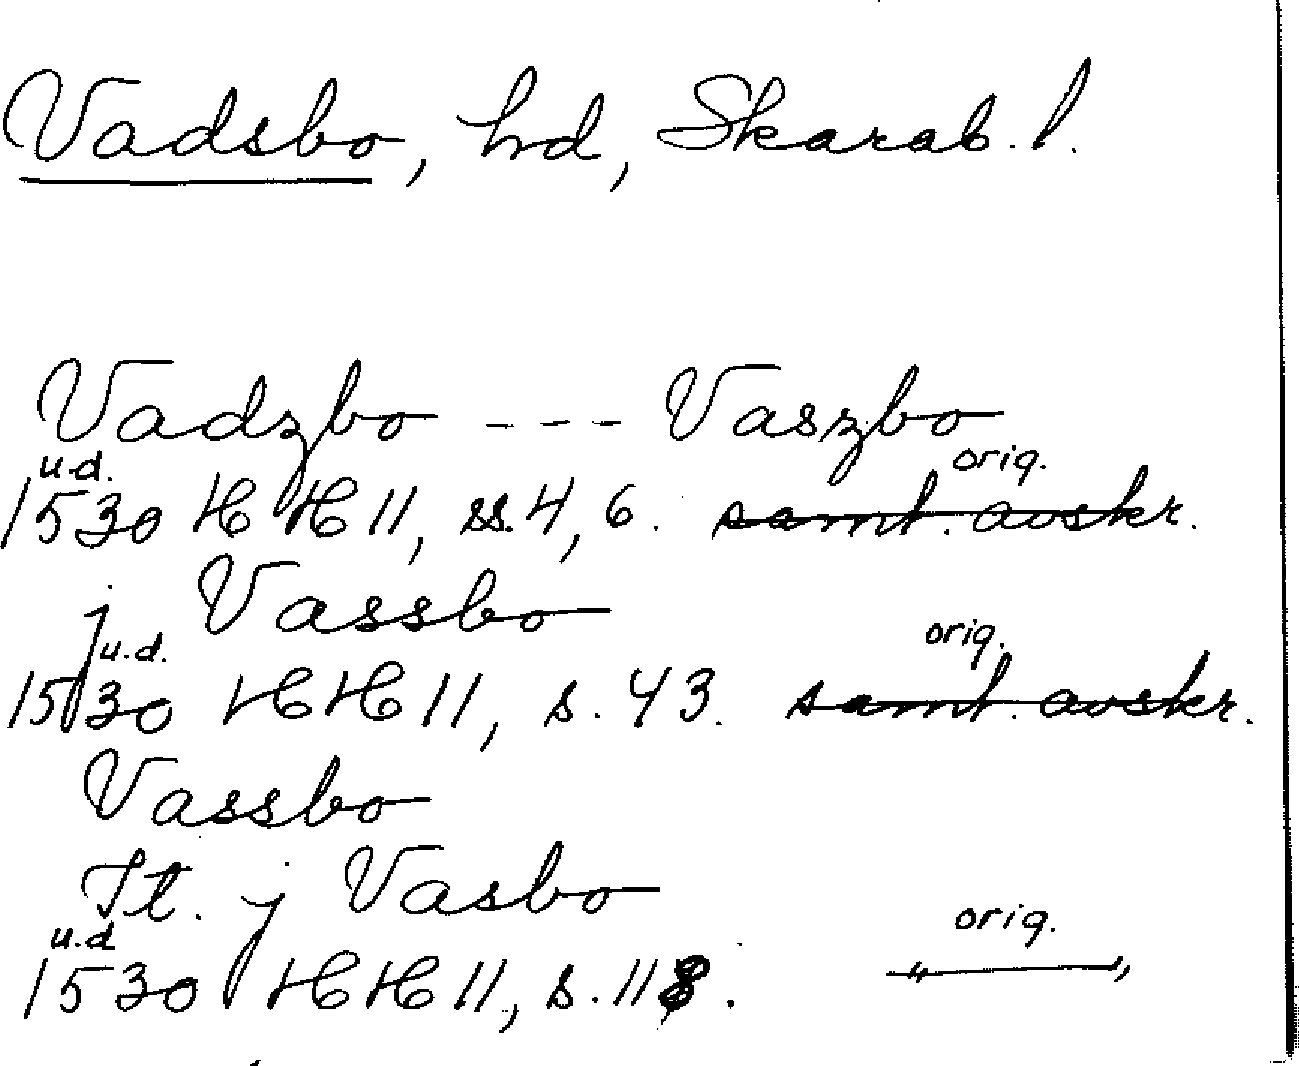 Vadsbo, hd, Skarab. l.
Vadzbo --- Vaszbo
u.d. orig.
1530 HH 11, ss. 4, 6. samt. avskr.
j Vassbo
u.d. orig.
1530 HH 11, s. 43. samt. avskr.
Vassbo
It. j Vasbo
u.d orig.
1530 HH 11, s. 118. — " — "